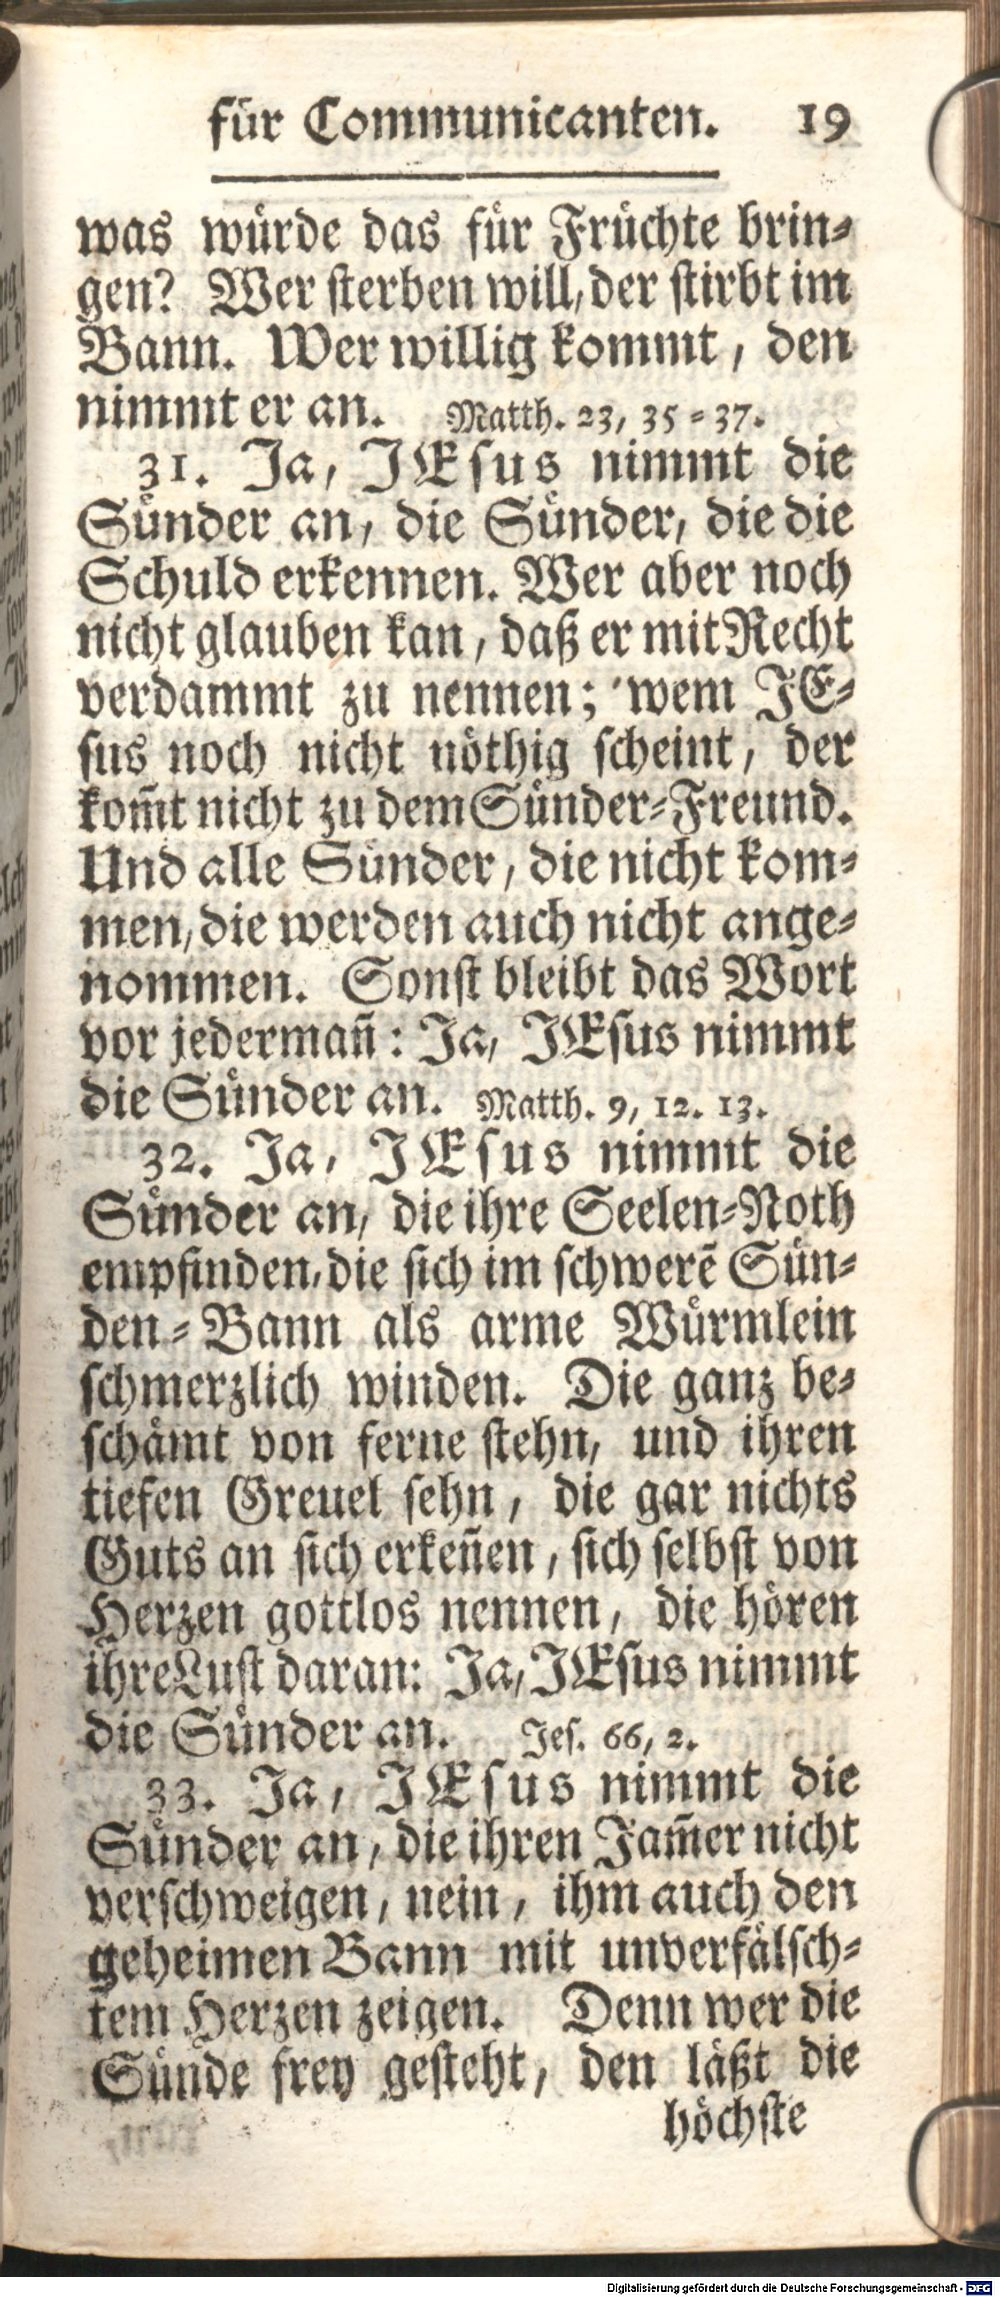 für Communicanten. 19
was würde das für Früchte brin-
gen? Wer sterben will, der stirbt im
Bann. Wer willig kommt, den
nimmt er an. Matth. 23, 35-37.
31. Ja, JEsus nimmt die
Sünder an, die Sünder, die die
Schuld erkennen. Wer aber noch
nicht glauben kan, daß er mit Recht
verdammt zu nennen; wem JE-
sus noch nicht nöthig scheint, der
kom̃t nicht zu dem Sünder-Freund.
Und alle Sünder, die nicht kom-
men, die werden auch nicht ange-
nommen. Sonst bleibt das Wort
vor jederman̄: Ja, JEsus nimmt
die Sünder an. Matth. 9, 12. 13.
32. Ja, JEsus nimmt die
Sünder an, die ihre Seelen-Noth
empfinden, die sich im schwerē Sün-
den-Bann als arme Würmlein
schmerzlich winden. Die ganz be-
schämt von ferne stehn, und ihren
tiefen Greuel sehn, die gar nichts
Guts an sich erken̄en, sich selbst von
Herzen gottlos nennen, die hören
ihre Lust daran: Ja, JEsus nimmt
die Sünder an. Jes. 66, 2.
33. Ja, JEsus nimmt die
Sünder an, die ihren Jam̃er nicht
verschweigen, nein, ihm auch den
geheimen Bann mit unverfälsch-
tem Herzen zeigen. Denn wer die
Sünde frey gesteht, den läßt die
höchste
Digitalisierung gefördert durch die Deutsche Forschungsgemeinschaft - DFG